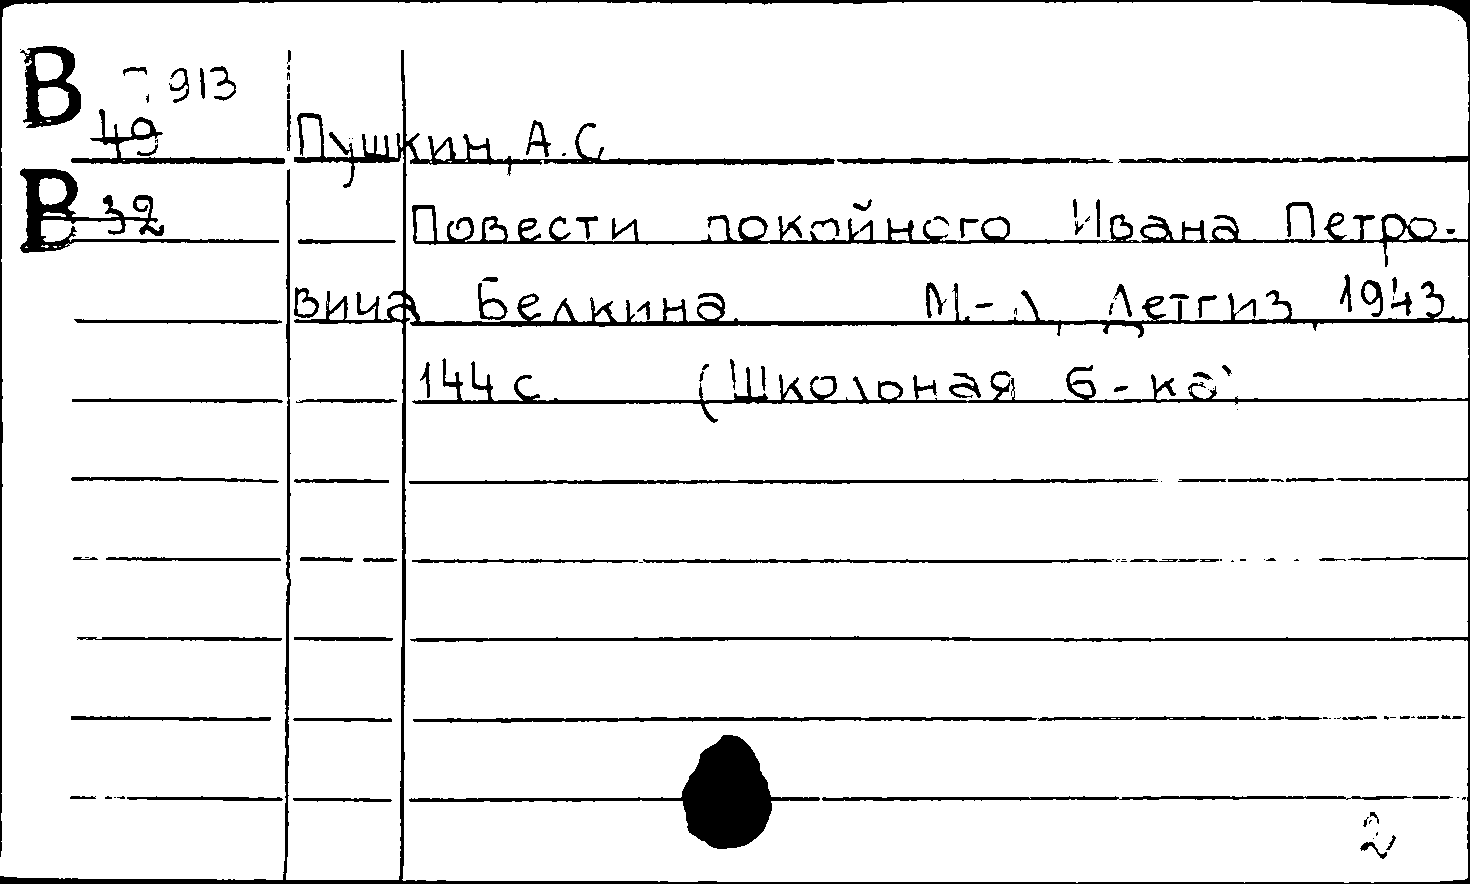 В 913
49 Пушкин, А.С.
В 32 Повести покойного Ивана Петро-
вича Белкина. М.-Л, Детгиз, 1943.
144 с. (Школьная б-ка)
2